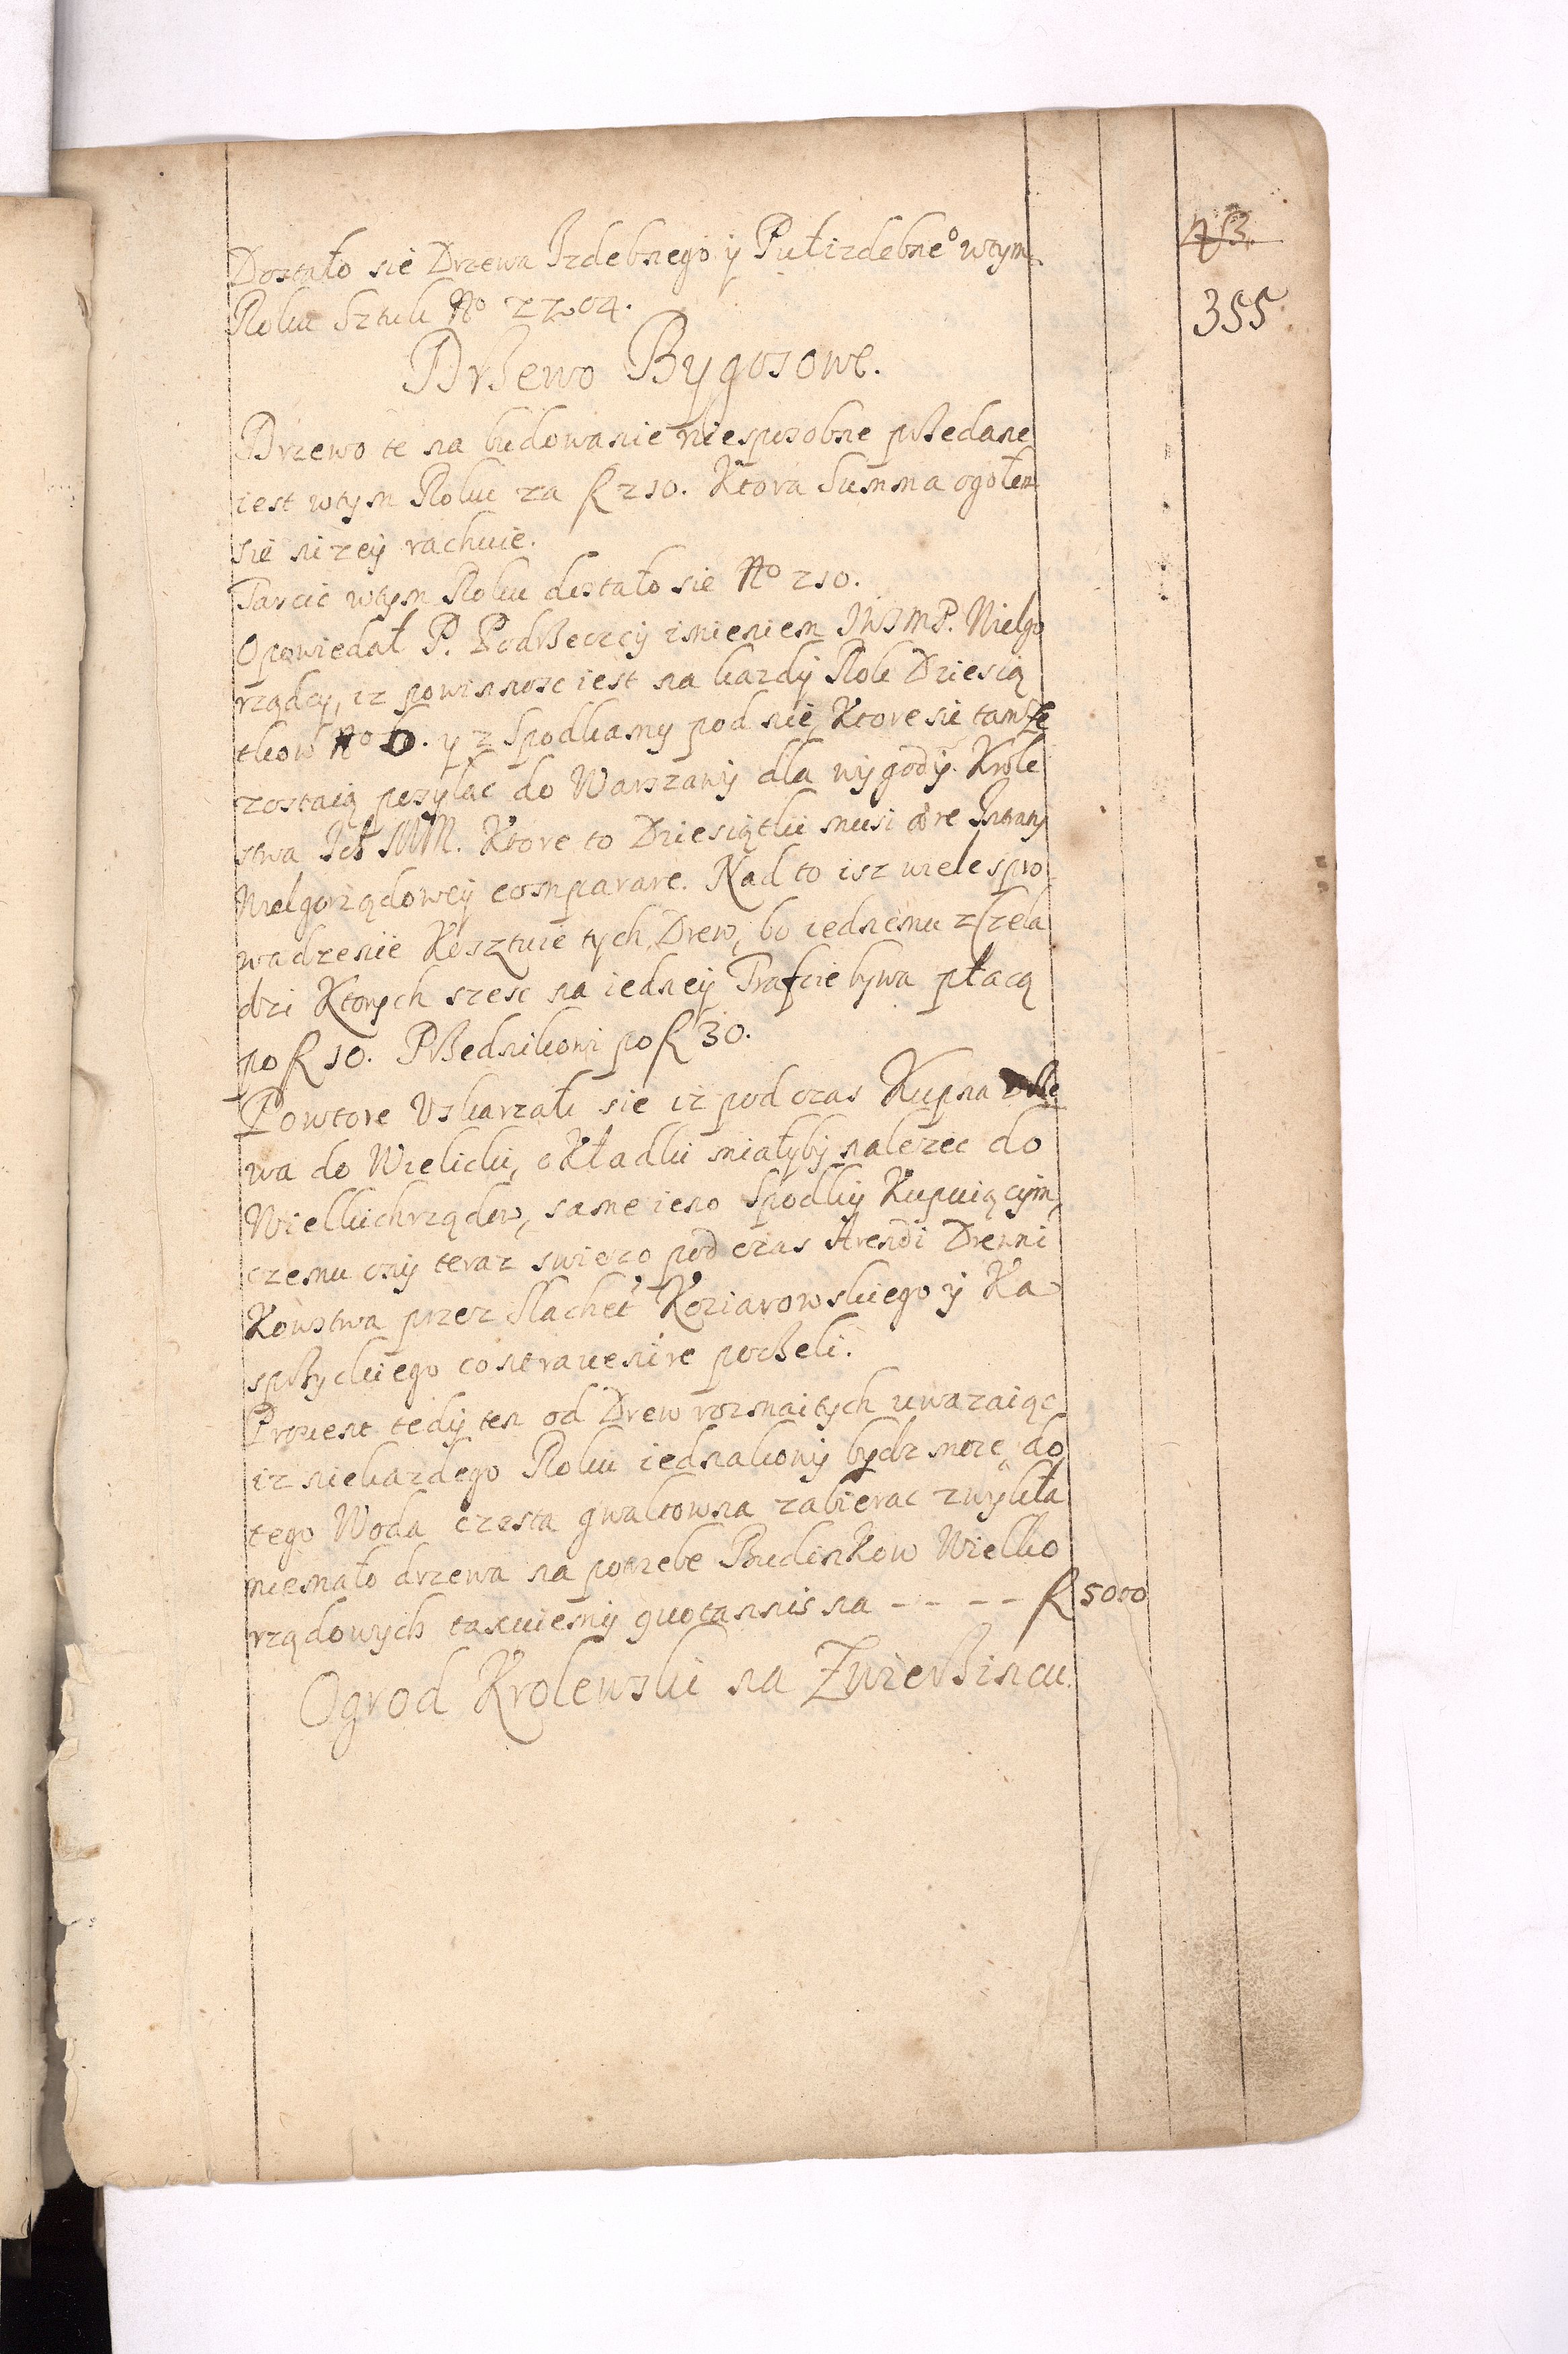 353
355
Dostało sie Drzewa Izdebnego y Putizdebneº wtym
Roku Sztuk Nº 2204.
Drzewo Bygosowe.
Drzewo te na budowanie niesposobne przedane
iest wtym Roku za f 210. Ktora Summa ogołem
sie nizey rachuie.
Tarcic wtym Roku dostało sie Nº 210.
Opowiedał P. Podrzeczy imieniem JWJMP. Wielgo
rządcy, iz powinnosc iest na kazdy Rok Dziesią
tkow Nº 6. y z Spodkamy pod nie, Ktore sie tamże
zostaią posyłac do Warszawy dla wygody Krole
stwa Ich MM. Ktore to Dziesiątki musi ære
Wielgorządowey comparare. Nad to isz wiele spro
wadzenie Kosztuie tych Drew, bo iednemu z Czela
dzi Ktorych szesc na iedney Trafcie bywa płacą
po f 10. Przednikowi po f 30.
Powtore Uskarzali sie iz pod czas Kupna
wa do Wieliczki, okładki miałyby nalezec do
Wielkichrządow, same ieno Spodky Kupuiącym,
czemu ony teraz swiezo pod czas Arendi Drewni
Kowstwa przez Slachet Koziarowskiego y Ka
sprzyckiego contravenire poczeli.
Prowent tedy ten od Drew rozmaitych uwazaiąc
iz niekazdego Roku iednakowy bydz moze, do
tego Woda czesta gwałtowna zabierac zwykła
niemało drzewa na potrzebe Budinkow Wielko
rządowych taxuiemy quotannis na - - - - f 5000
Ogrod Krolewski na Zwierzincu.